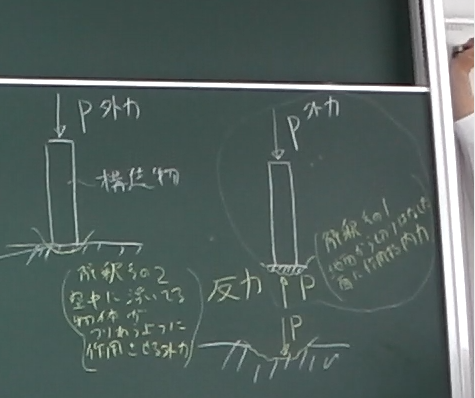 P 外力
構造物
解釈その2
空中に浮いてる
物体が
つりあうように
作用させる外力
P 外力
解釈その1
地面から切りはなした
面に作用する内力
反力 P
P